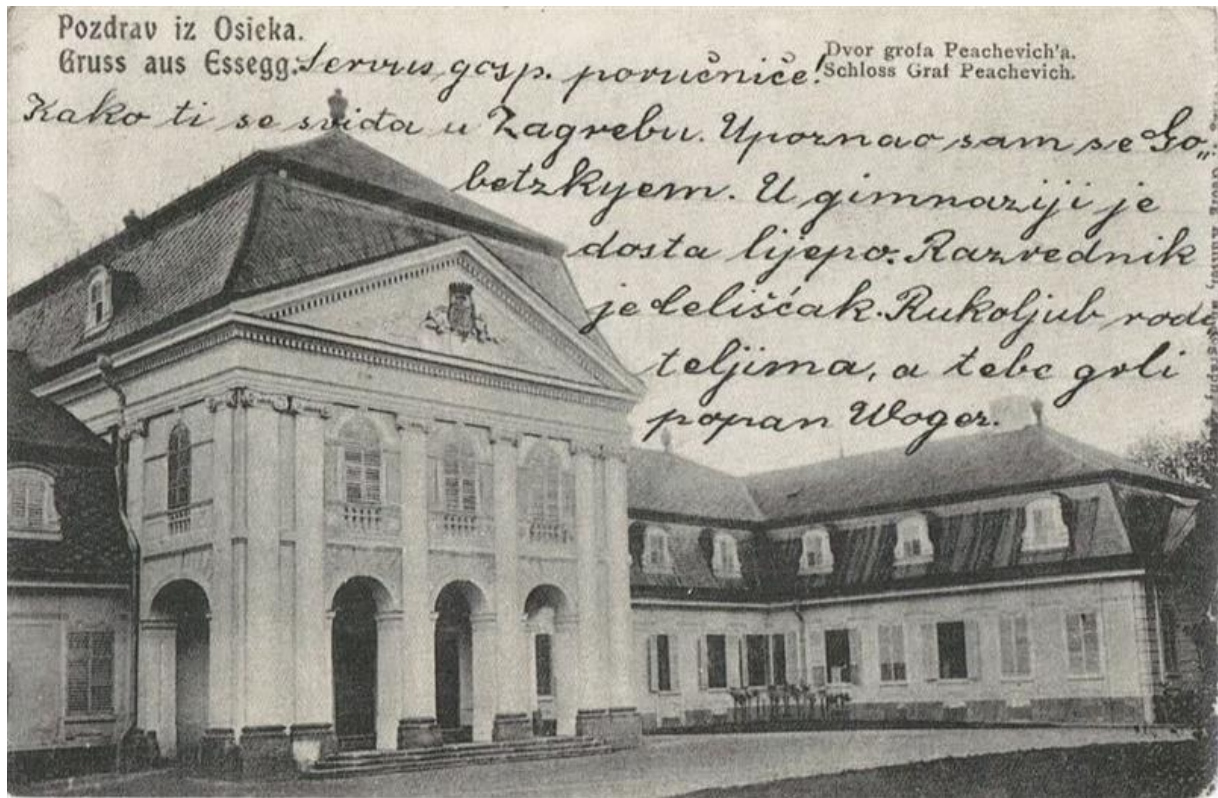 Pozdrav iz Osieka.
Gruss aus Essegg.
Dvor grofa Peachevich'a.
Schloss Graf Peachevich.
Servus, gosp. poručniče!
Kako ti se sviđa u Zagrebu. Upoznao sam se Go„
betzkyem. U gimnaziji je
dosta lijepo. Razrednik
je Celišćak. Rukoljub rodi
teljima, a tebe grli
popan Woger.